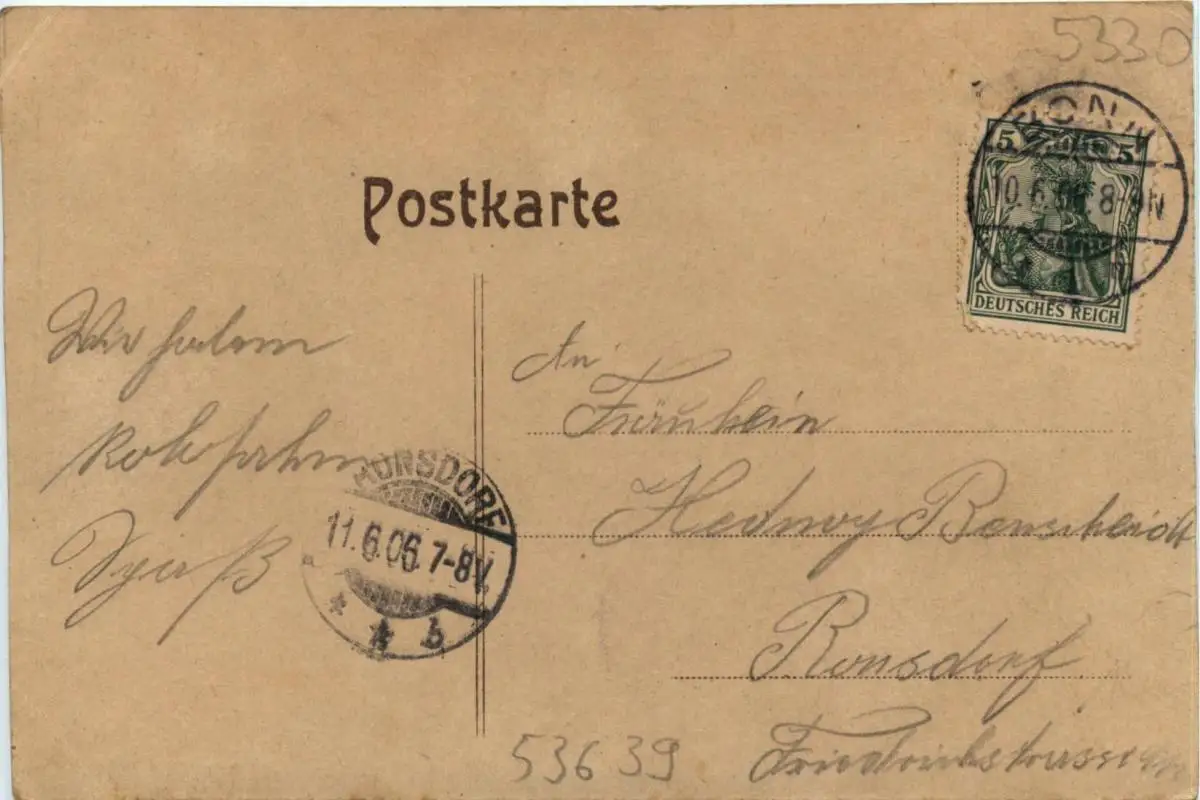 5330
BONN
10.6.06 8-9N
5 5
DEUTSCHES REICH
Postkarte
Wir haben
Spaß
RONSDORF
11.6.06. 7-8V.
* b
An
Fräulein
Hedwig Remscheidt
Ronsdorf
Friedrichstrasse
53639